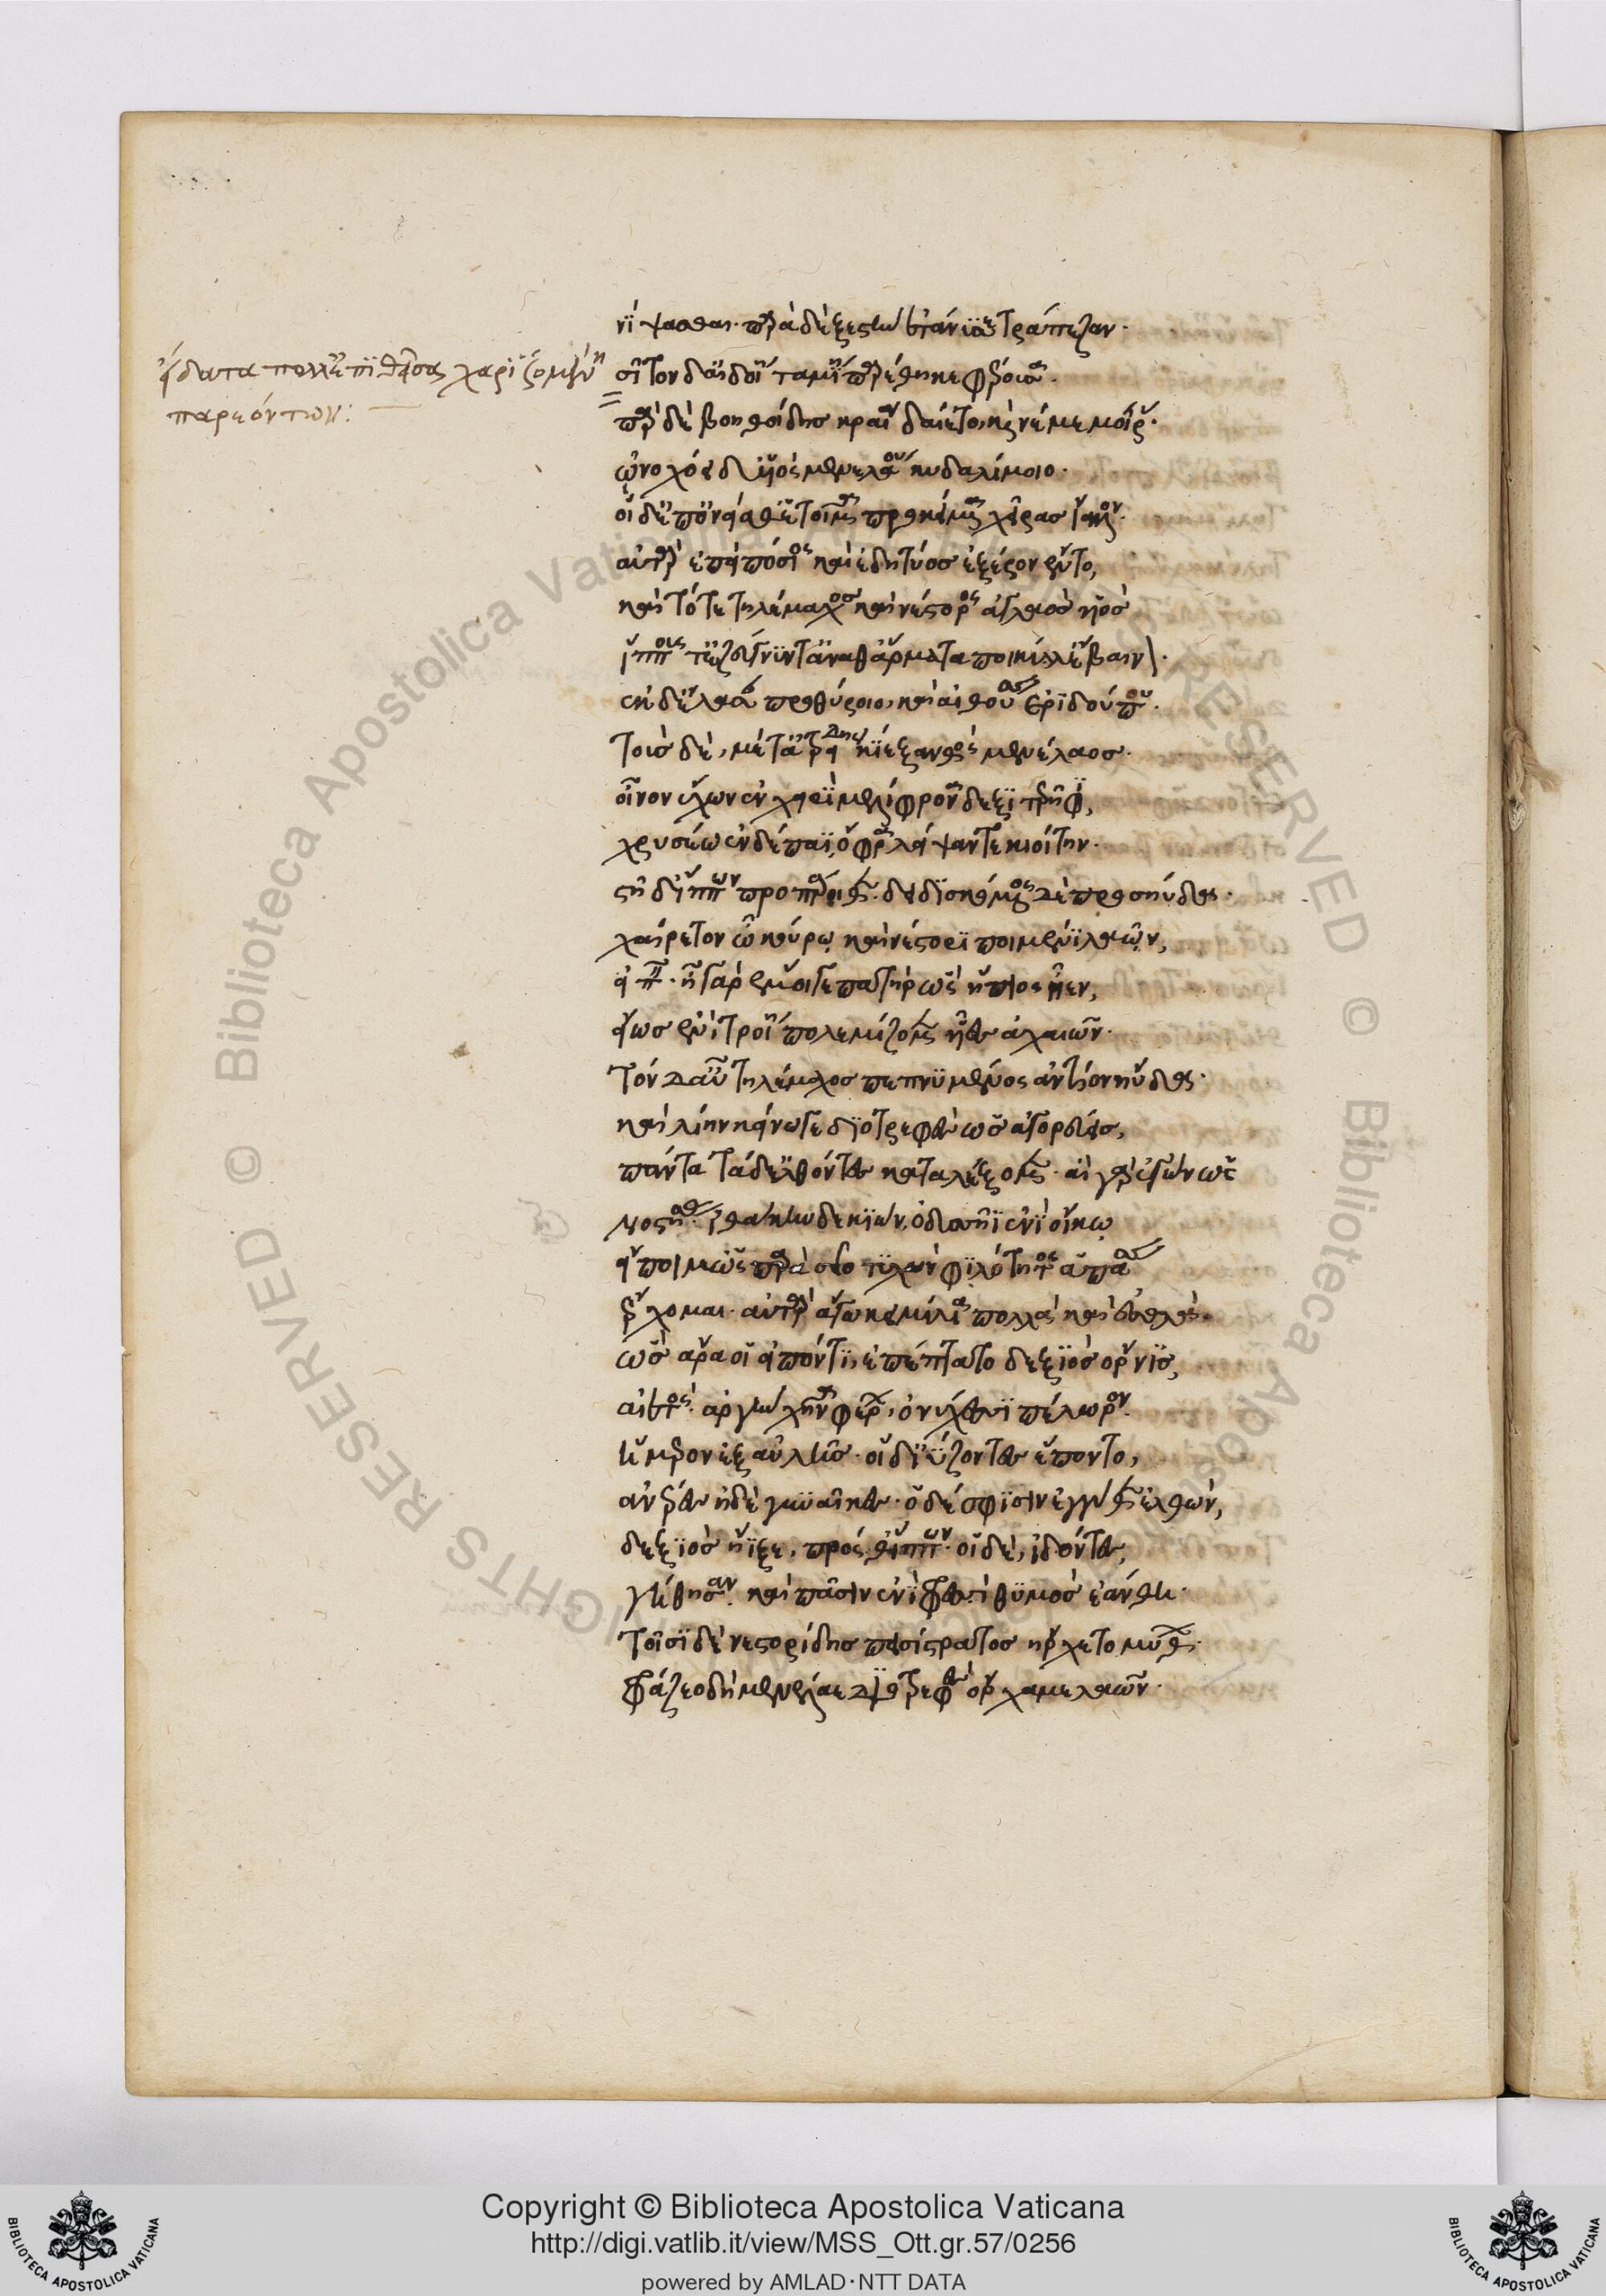 νίψασθαι· παρὰ δὲ ξεστὴν ἐτάνυσσε τράπεζαν·
σῖτον δ' αἰδοίη ταμίη παρέθηκε φέρουσα·
εἴδατα πόλλ' ἐπιθεῖσα χαριζομένη
παρεόντων:
πὰρ δὲ βοηθοίδης κρέα δαίετο, καὶ νέμε μοίρας·
ᾠνοχόει δ' υἱὸς μενελάου κυδαλίμοιο·
οἱ δ' ἐπ' ὀνείαθ' ἑτοῖμα προκείμενα χεῖρας ἴαλλον·
αὐτὰρ ἐπεὶ πόσιος καὶ ἐδητύος ἐξ ἔρον ἕντο,
καὶ τότε τηλέμαχος καὶ νέστορος ἀγλαὸς υἱὸς
ἵππους τε ζεύγνυντ' ἀνά θ' ἅρματα ποικίλ' ἔβαινον·
ἐκ δ' ἔλασαν προθύροιο, καὶ αἰθούσης ἐριδούπου·
τοὺς δὲ, μέτ' ἀτρείδης κίε ξανθὸς μενέλαος·
οἶνον ἔχων ἐν χειρὶ μελίφρονα δεξιτερῆφι,
χρυσέω ἐν δέπαϊ, ὄφρα λείψαντε κιοίτην·
στῆ δ' ἵππων προπάροιθεν· δεδισκόμενος δὲ προσηύδα·
χαίρετον ὦ κούρω, καὶ νέστορι ποιμένι λαῶν,
εἰπεῖν· ἦ γὰρ ἐμοί γε πατὴρ ὣς ἤπιος ἦεν,
εἵως ἐνὶ τροίη πολεμίζομεν υἷες ἀχαιῶν·
τὸν δ' αὖ τηλέμαχος πεπνυμένος ἀντίον ηὔδα·
καὶ λίην κείνω γε διοτρεφὲς ὡς ἀγορεύεις,
πάντα τάδ' ἐλθόντες καταλέξομεν· αἲ γὰρ ἐγὼν ὣς
νοστήσας ἰθάκην δε κιὼν, ὀδυσῆϊ ἐνὶ οἴκω
εἴποιμ' ὡς παρὰ σεῖο τυχὼν φιλότητος ἁπάσης
ἔρχομαι· αὐτὰρ ἄγω κειμήλια πολλὰ καὶ ἐσθλά·
ὣς ἄρα οἱ εἰπόντι, ἐπέπτατο δεξιὸς ὄρνις,
αἰετὸς· ἀργὴν χῆνα φέρων, ὀνύχεσσι πέλωρον·
ἥμερον ἐξ αὐλῆς· οἱ δ' ἰΰζοντες ἕποντο,
ἀνέρες ἠδὲ γυναῖκες· ὁ δέ σφισιν ἐγγύθεν ἐλθὼν,
δεξιὸς ἤιξε, πρόσθ' ἵππων· οἱ δὲ, ἰδόντες,
γήθησαν· καὶ πᾶσιν ἐνὶ φρεσὶ θυμὸς ἰάνθη·
τοῖσι δὲ νεστορίδης πεισίστρατος ἤρχετο μύθων·
φράζεο δὴ μενέλαε διοτρεφὲς ὄρχαμε λαῶν·
Copyright © Biblioteca Apostolica Vaticana
http://digi.vatlib.it/view/MSS_Ott.gr.57/0256
powered by AMLAD·NTT DATA